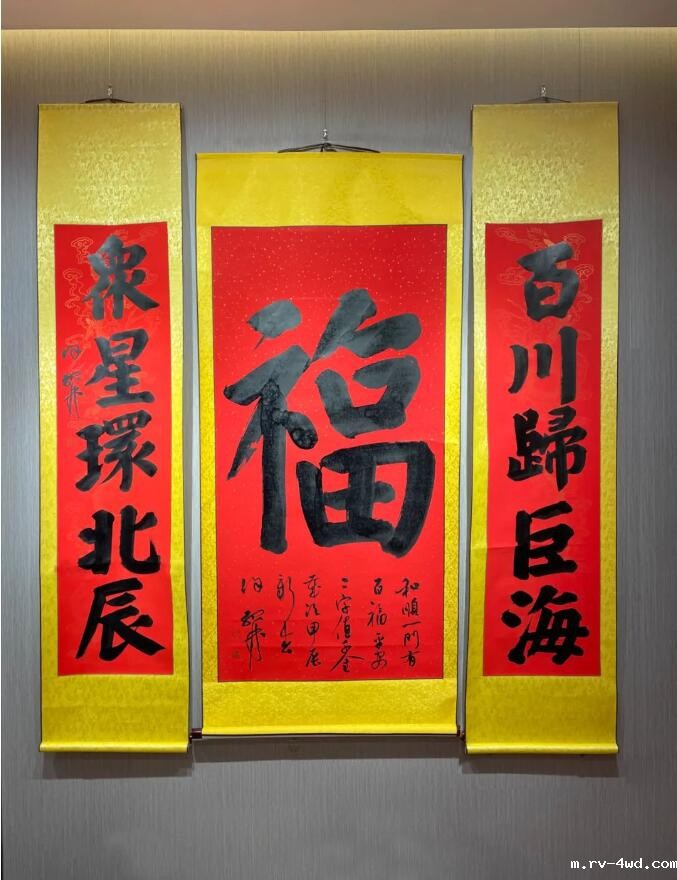 百川歸巨海
福
和順一門有
百福平安
二字值千金
歲次甲辰
新
眾星環北辰
m.rv-4wd.com